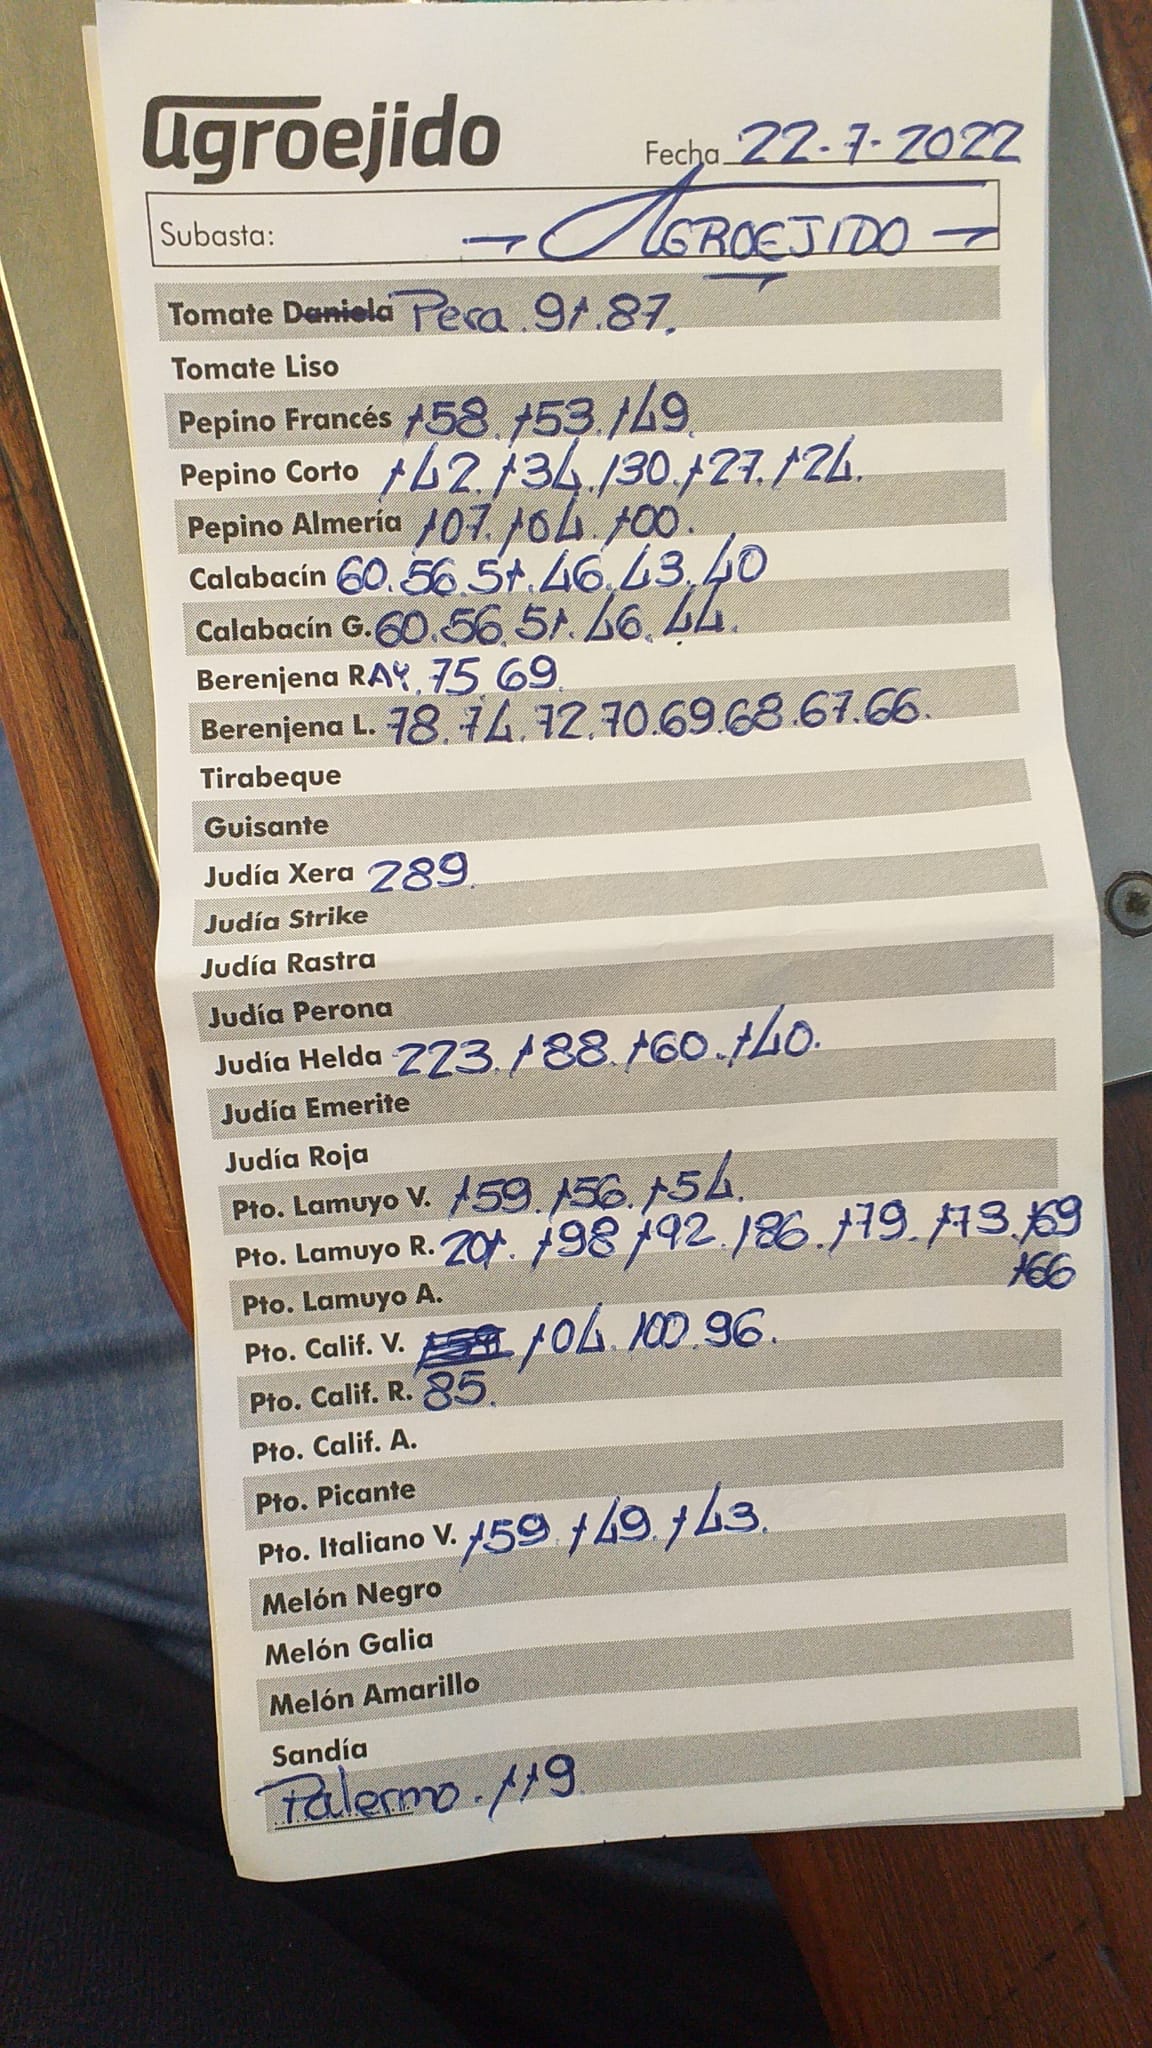 agroejido
Fecha 22-7-2022
Subasta: → AGROEJIDO →
Tomate Daniela Pera. 91. 87.
Tomate Liso
Pepino Francés 158. 153. 149.
Pepino Corto 142. 134. 130. 127. 124.
Pepino Almería 107. 104. 100.
Calabacín 60. 56. 51. 46. 43. 40
Calabacín G. 60. 56. 51. 46. 44.
Berenjena RAY. 75. 69.
Berenjena L. 78. 74. 72. 70. 69. 68. 67. 66.
Tirabeque
Guisante
Judía Xera 289.
Judía Strike
Judía Rastra
Judía Perona
Judía Helda 223. 188. 160. 140.
Judía Emerite
Judía Roja
Pto. Lamuyo V. 159. 156. 154.
Pto. Lamuyo R. 201. 198 192. 186. 179. 173. 169
166
Pto. Lamuyo A.
Pto. Calif. V. 159 104. 100. 96.
Pto. Calif. R. 85.
Pto. Calif. A.
Pto. Picante
Pto. Italiano V. 159. 149. 143.
Melón Negro
Melón Galia
Melón Amarillo
Sandía
Palermo. 119.